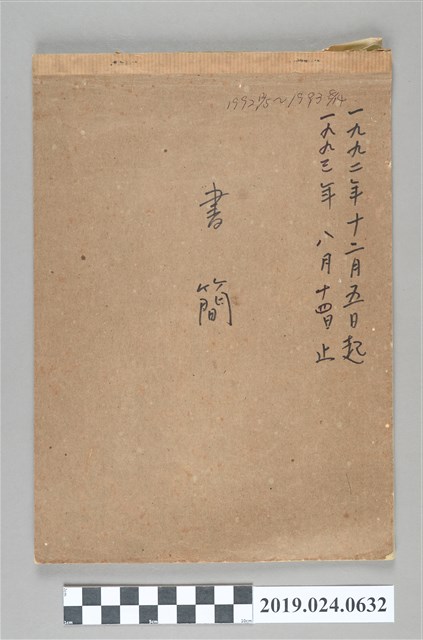 1992 12/5~1993 8/14
一九九二年十二月五日起
一九九三年 八月十四日止
書簡
2019.024.0632